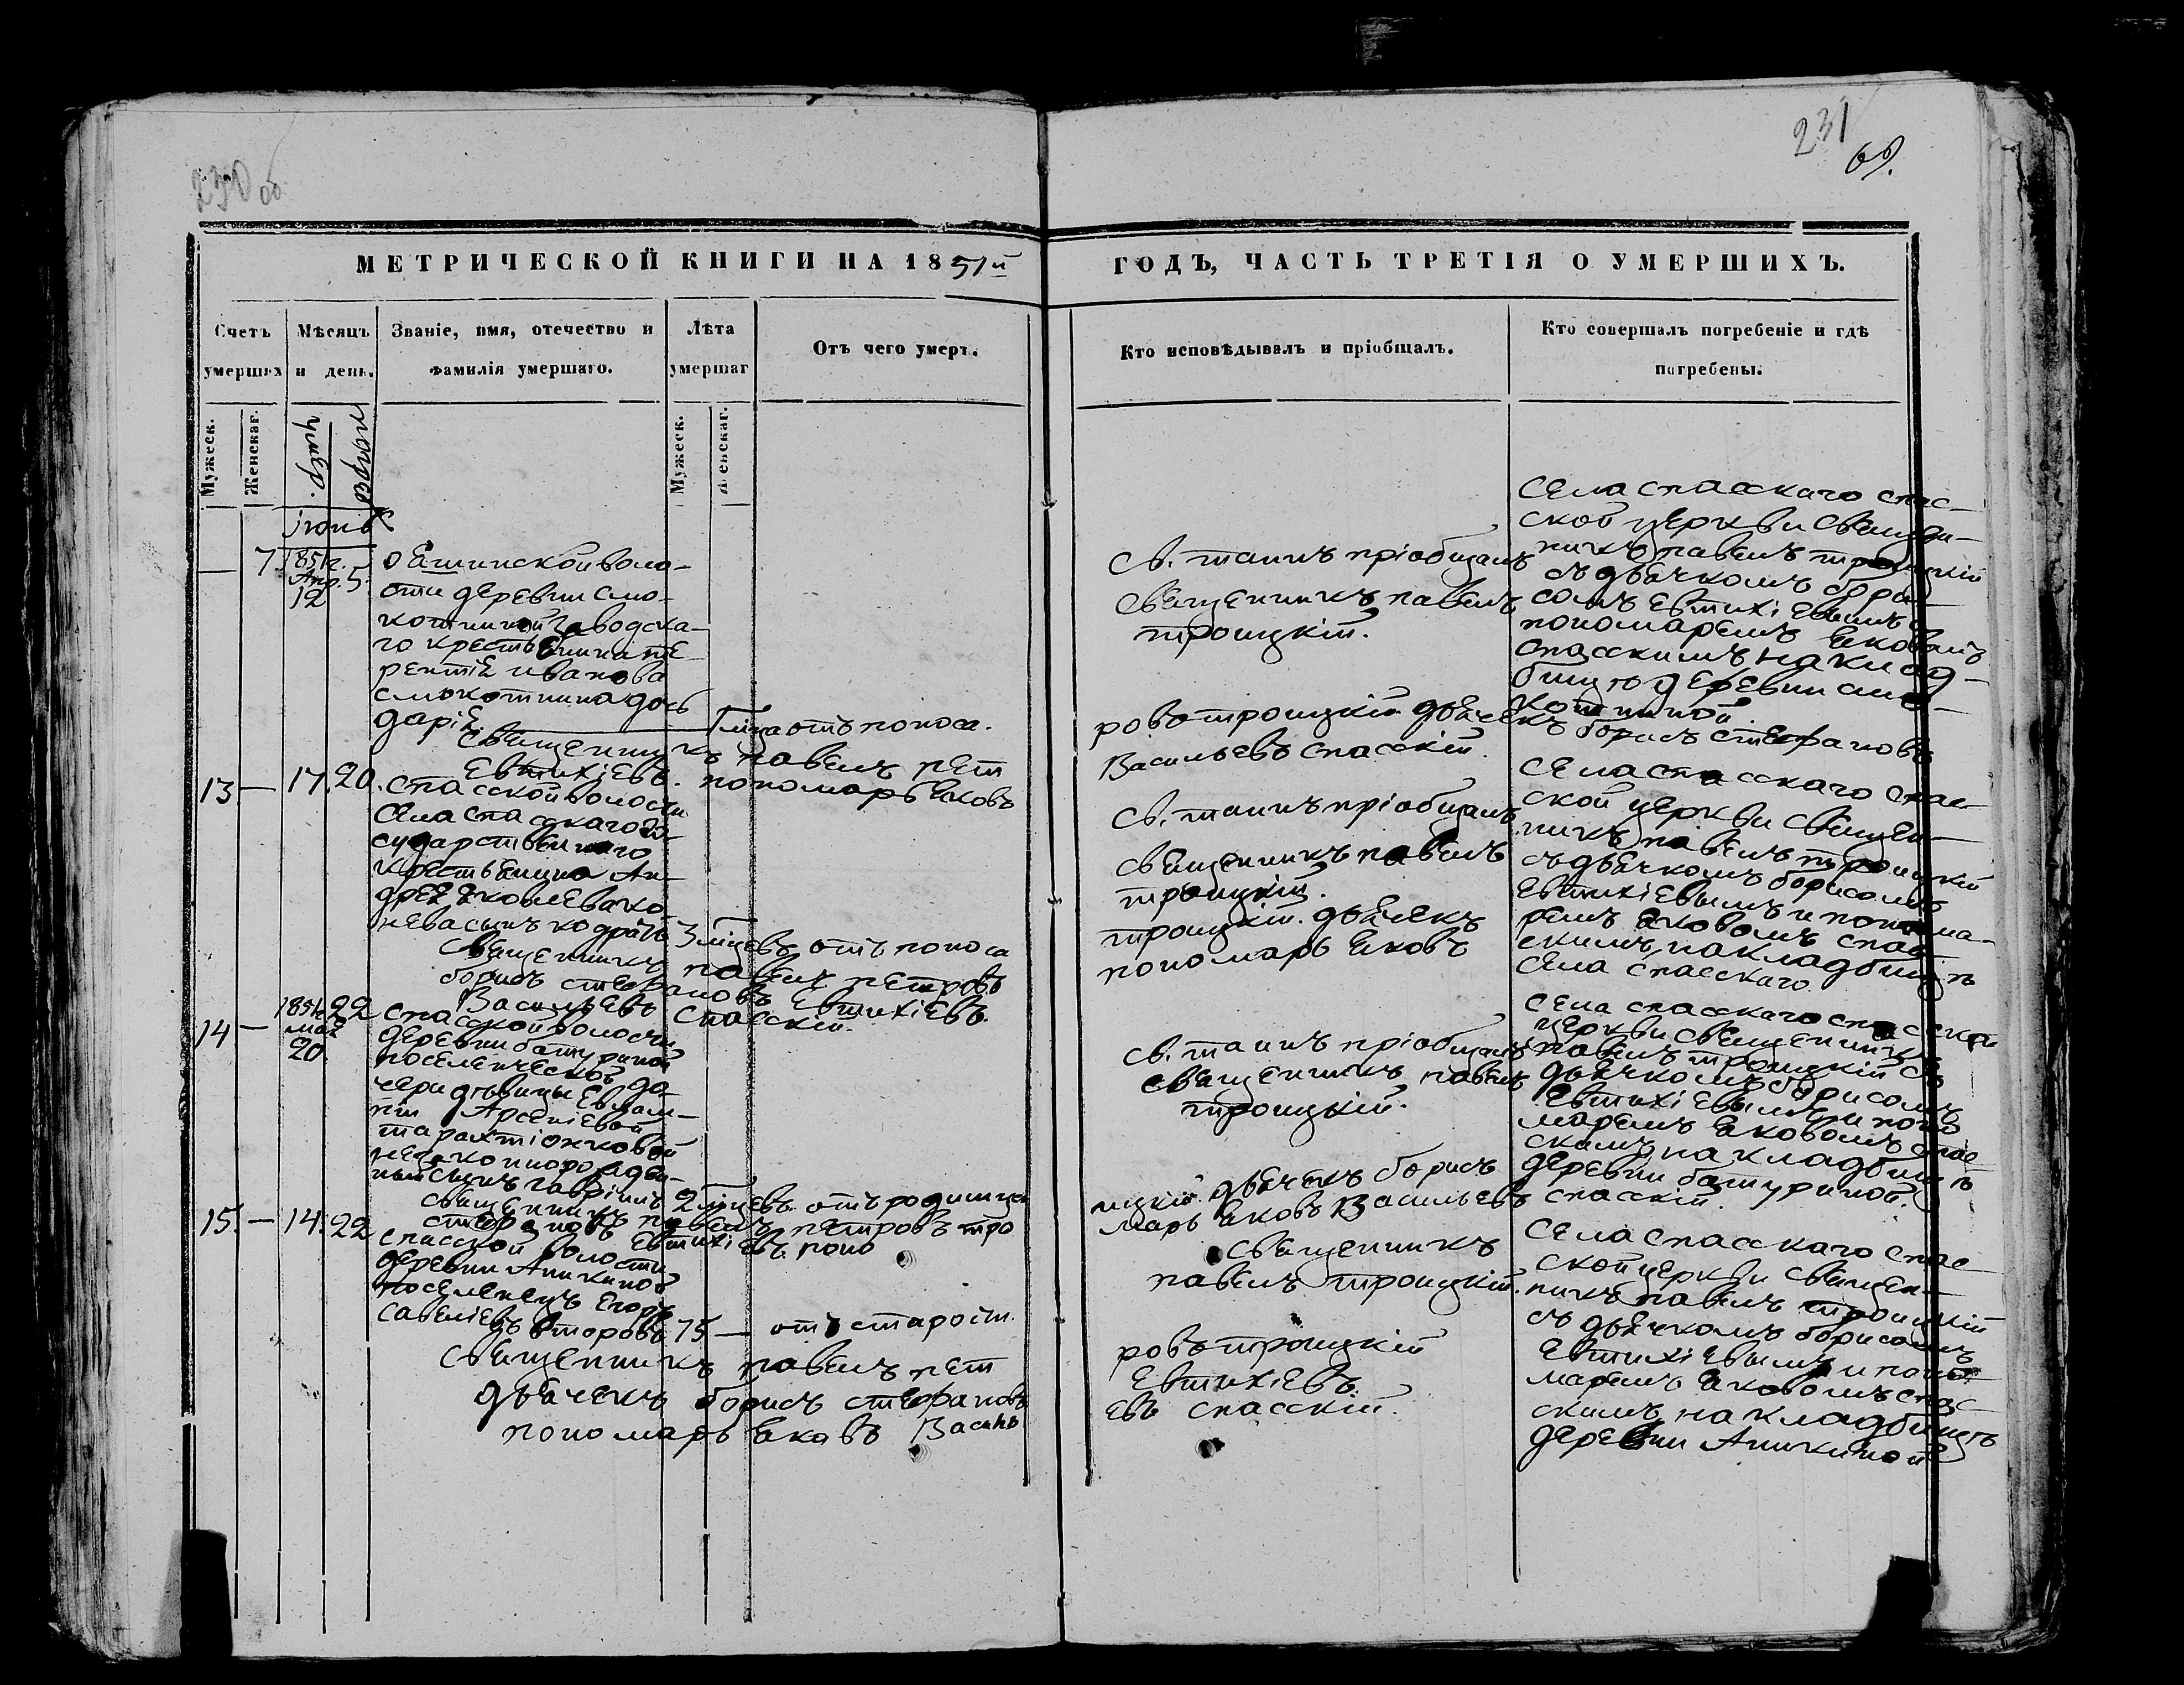 230 об
231
69.
МЕТРИЧЕСКОЙ КНИГИ НА 1851й ГОДЪ, ЧАСТЬ ТРЕТІЯ О УМЕРШИХЪ.
Счетъ умерших
Мѣсяцъ и день.
Званіе, имя, отечество и фамилія умершаго.
Лѣта умершаг
Отъ чего умеръ.
Кто исповѣдывалъ и пріобщалъ.
Кто совершалъ погребеніе и гдѣ погребены.
Мужеск.
Женскаг.
умер.
Мужеск.
Женскаг.
— 7
1851г.
Апр. 5.
12
ояшинской воло-
сти деревни смо-
котниной заводска-
го крестьянина те-
рентія иванова
смокотнина дочь
дарія
1 лица отъ поноса.
св. таинъ пріобщалъ
священникъ павелъ
троицкій.
Села спасскаго спас-
ской церкви священ-
никъ павелъ троицкій
съ дьячкомъ бори-
сомъ евтихіевымъ и
пономаремъ Яковомъ
спасскимъ на клад-
бищѣ деревни смо-
котниной.
священникъ павелъ пет
ровъ троицкій дьячекъ борисъ стефановъ
Евтихіевъ. пономарь Яковъ
Васильевъ спасскій.
13 — 17. 20.
спасской волости
Села спасскаго го-
сударственнаго
крестьянина Ан-
дрея Яковлева ко-
нева сынъ кодратъ
3 мцевъ отъ поноса
св. таинъ пріобщалъ
священникъ павелъ
троицкій.
Села спасскаго спас-
ской церкви священ-
никъ павелъ троицкій
съ дьячкомъ борисомъ
Евтихіевымъ и понома-
ремъ Яковомъ спас-
скимъ, на кладбищѣ
Села спасскаго
священникъ павелъ петровъ
троицкій. дьячекъ
борисъ стефановъ Евтихіевъ.
пономарь Яковъ
Васильевъ спасскій.
14 —
1851г
мая
20.
22
спасской волости
деревни батуриной
поселенческой до-
чери дѣвицы Евлам-
піи Арсеніевой
тарахтіонковой
незаконнорожден-
ный сынъ гавріилъ
2 мцевъ. отъ родимца
св. таинъ пріобщалъ
священникъ павелъ
троицкій.
Села спасскаго спасской
церкви священникъ
павелъ троицкій съ
дьячкомъ борисомъ
Евтихіевымъ и поно
маремъ Яковомъ спас
скимъ, на кладбищѣ
деревни батуриной.
священникъ павелъ петровъ тро
ицкій. дьячекъ борисъ
стефановъ Евтихіевъ. поно
марь Яковъ Васильевъ спасскій.
15. — 14. 22
спасской волости
деревни Аникиной
поселенецъ Егоръ
савеліевъ второвъ
75 —
отъ старости.
священникъ
павелъ троицкій.
Села спасскаго спас-
ской церкви священ-
никъ павелъ троицкій
съ дьячкомъ борисомъ
Евтихіевымъ и поно
маремъ Яковомъ спас-
скимъ, на кладбищѣ
деревни Аникиной
священникъ павелъ пет
ровъ троицкій
дьячекъ борисъ стефановъ
Евтихіевъ.
пономарь Яковъ Василь
евъ спасскій.